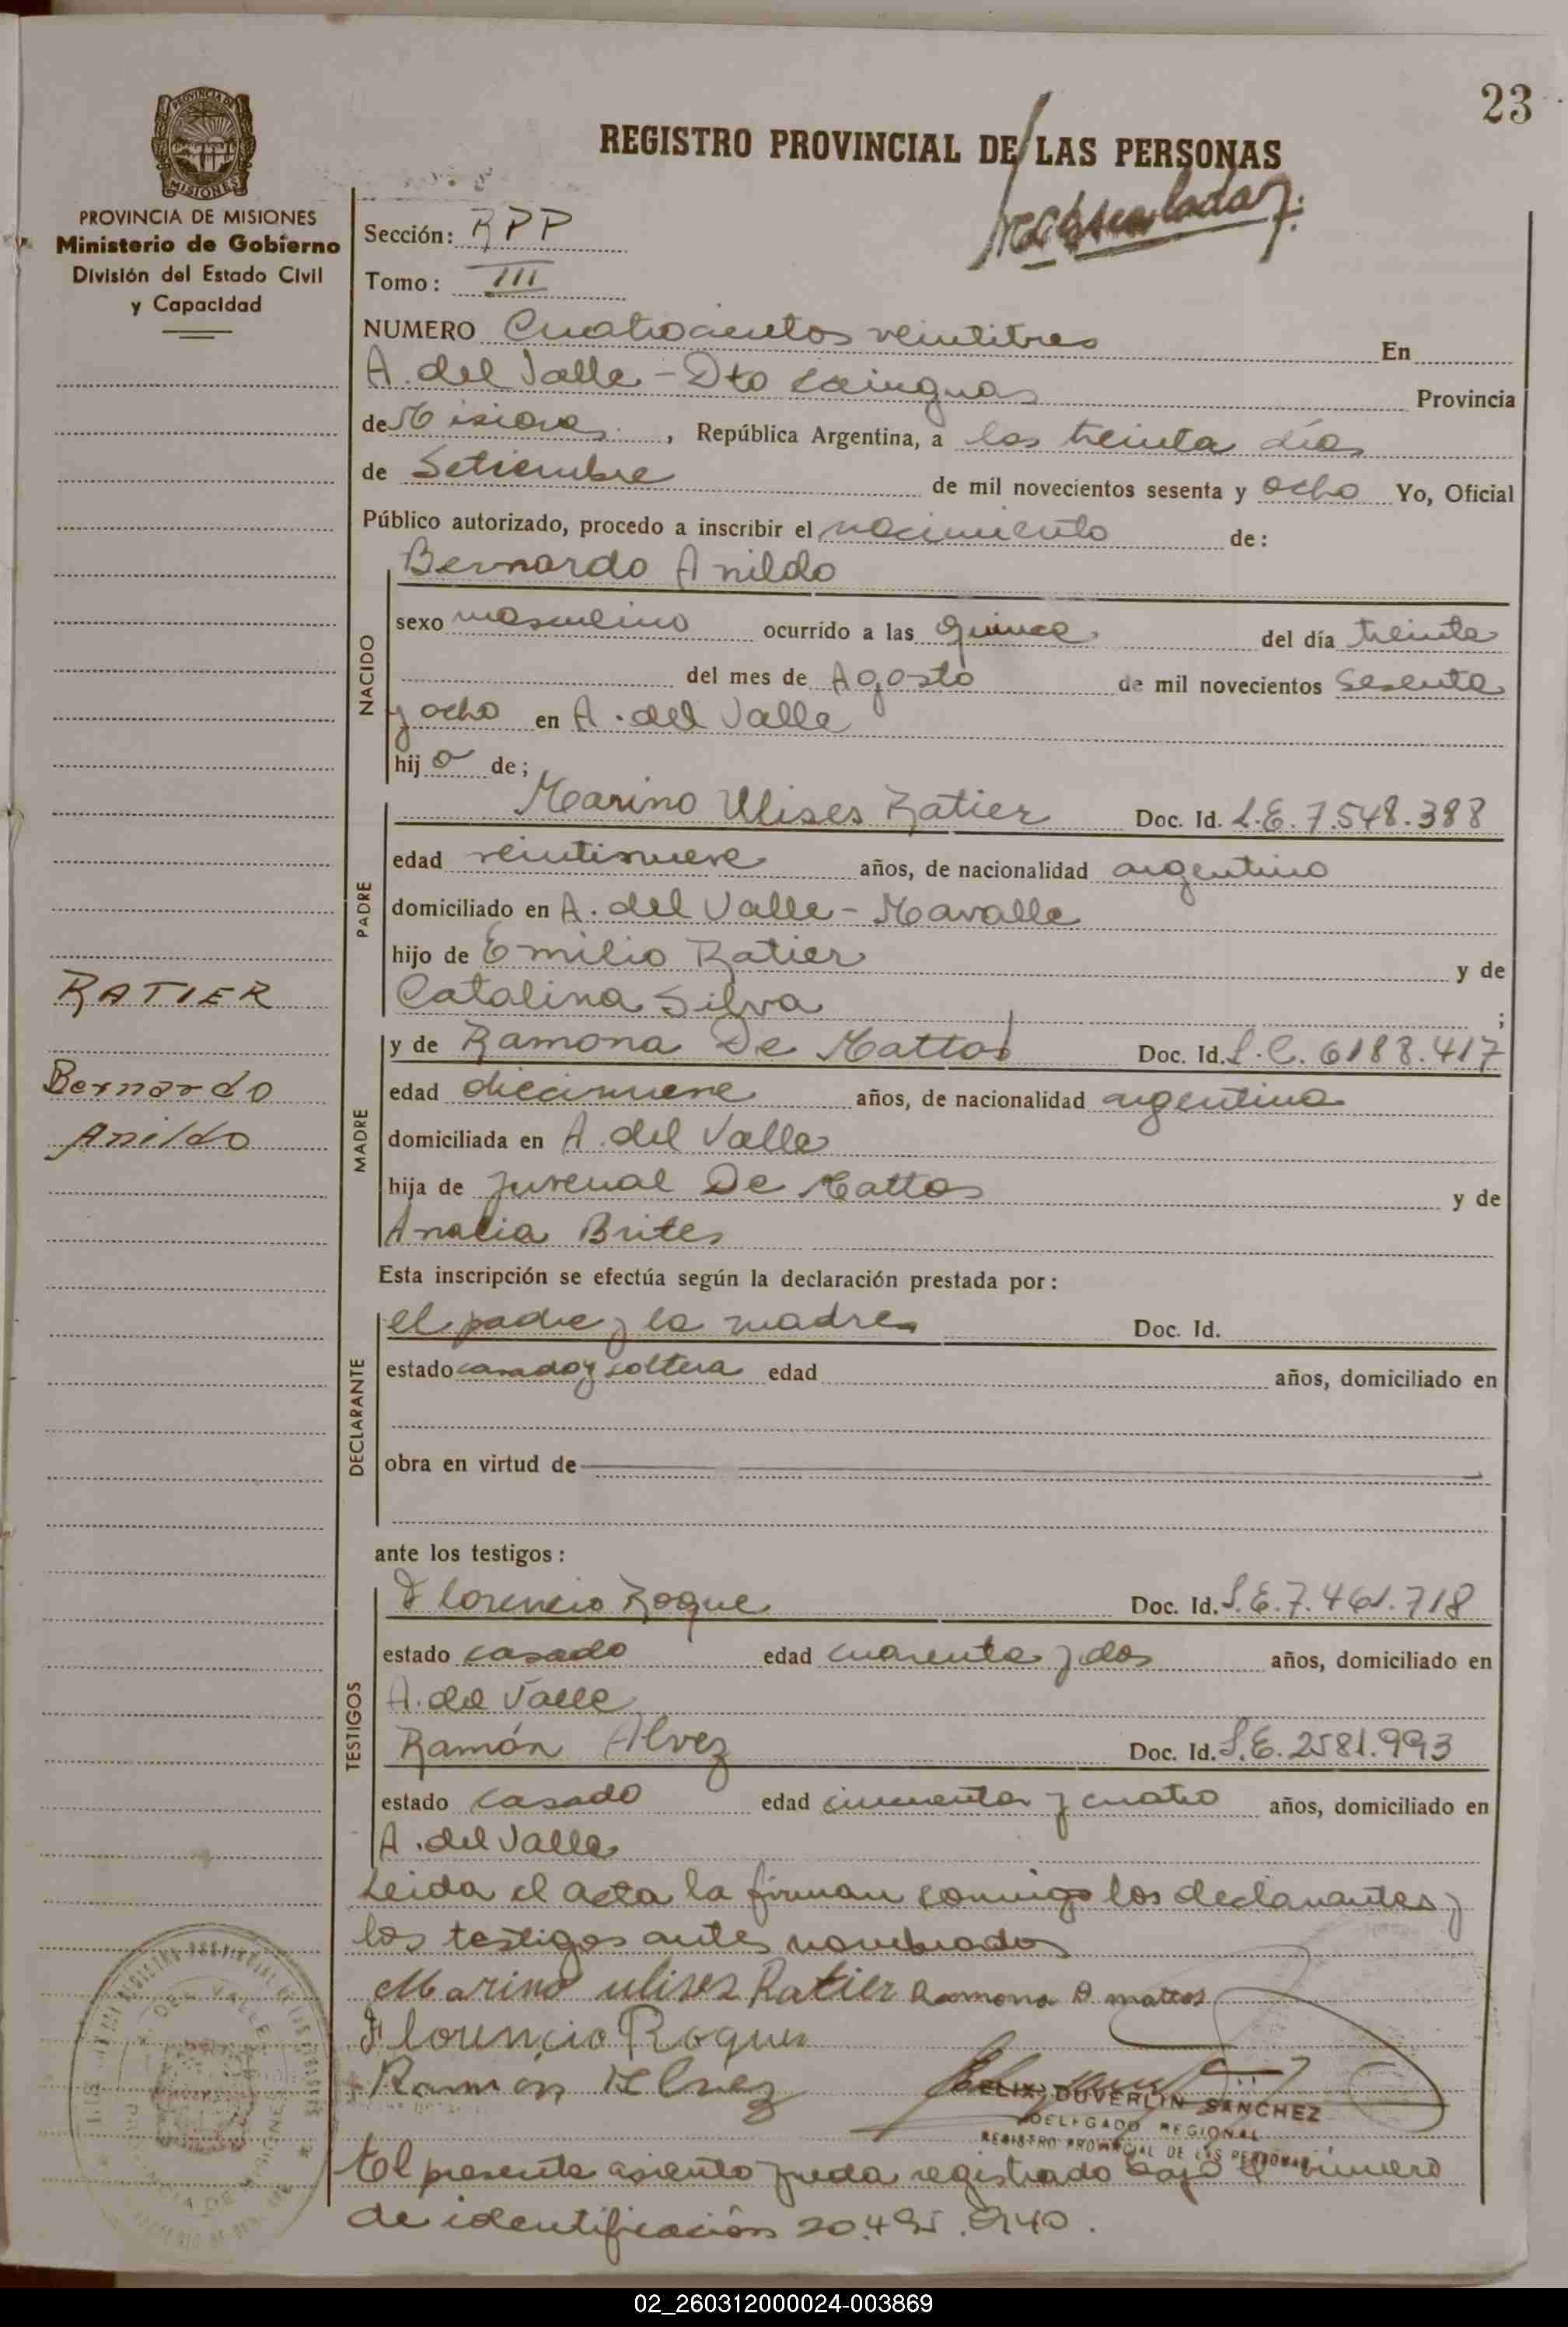 23
REGISTRO PROVINCIAL DE LAS PERSONAS
PROVINCIA DE MISIONES
MISIONES
PROVINCIA DE MISIONES
Ministerio de Gobierno
División del Estado Civil
y Capacidad
Sección: RPP
Tomo: III
NUMERO Cuatrocientos veintitres En
A. del Valle - Dto Cainguas Provincia
de Misiones, República Argentina, a los treinta días
de Setiembre de mil novecientos sesenta y ocho Yo, Oficial
Público autorizado, procedo a inscribir el nacimiento de:
Bernardo Anildo
NACIDO
sexo masculino ocurrido a las quince del día treinta
del mes de Agosto de mil novecientos sesenta
y ocho en A. del Valle
hijo de;
PADRE
Marino Ulises Ratier Doc. Id. L.E. 7.548.388
edad veintinueve años, de nacionalidad argentino
domiciliado en A. del Valle - Mavalle
hijo de Emilio Ratier y de
Catalina Silva ;
RATIER
Bernardo
Anildo
MADRE
y de Ramona De Mattos Doc. Id. L.C. 6188.417
edad diecinueve años, de nacionalidad argentina
domiciliada en A. del Valle
hija de Juvenal De Mattos y de
Analia Brites
Esta inscripción se efectúa según la declaración prestada por:
DECLARANTE
el padre y la madre Doc. Id.
estado casado y soltera edad años, domiciliado en
obra en virtud de
ante los testigos:
TESTIGOS
Florencio Roque Doc. Id. L.E. 7.461.718
estado casado edad cuarenta y dos años, domiciliado en
A. del Valle
Ramón Alvez Doc. Id. L.E. 2581.993
estado casado edad cincuenta y cuatro años, domiciliado en
A. del Valle
Leida el acta la firman conmigo los declarantes y
los testigos antes nombrados
Marino ulises Ratier Ramona D mattos
Florencio Roque
Ramón Alvez
FELIX DUVERLIN SANCHEZ
DELEGADO REGIONAL
REGISTRO PROVINCIAL DE LAS PERSONAS
El presente asiento queda registrado bajo el número
de identificación
02_260312000024-003869